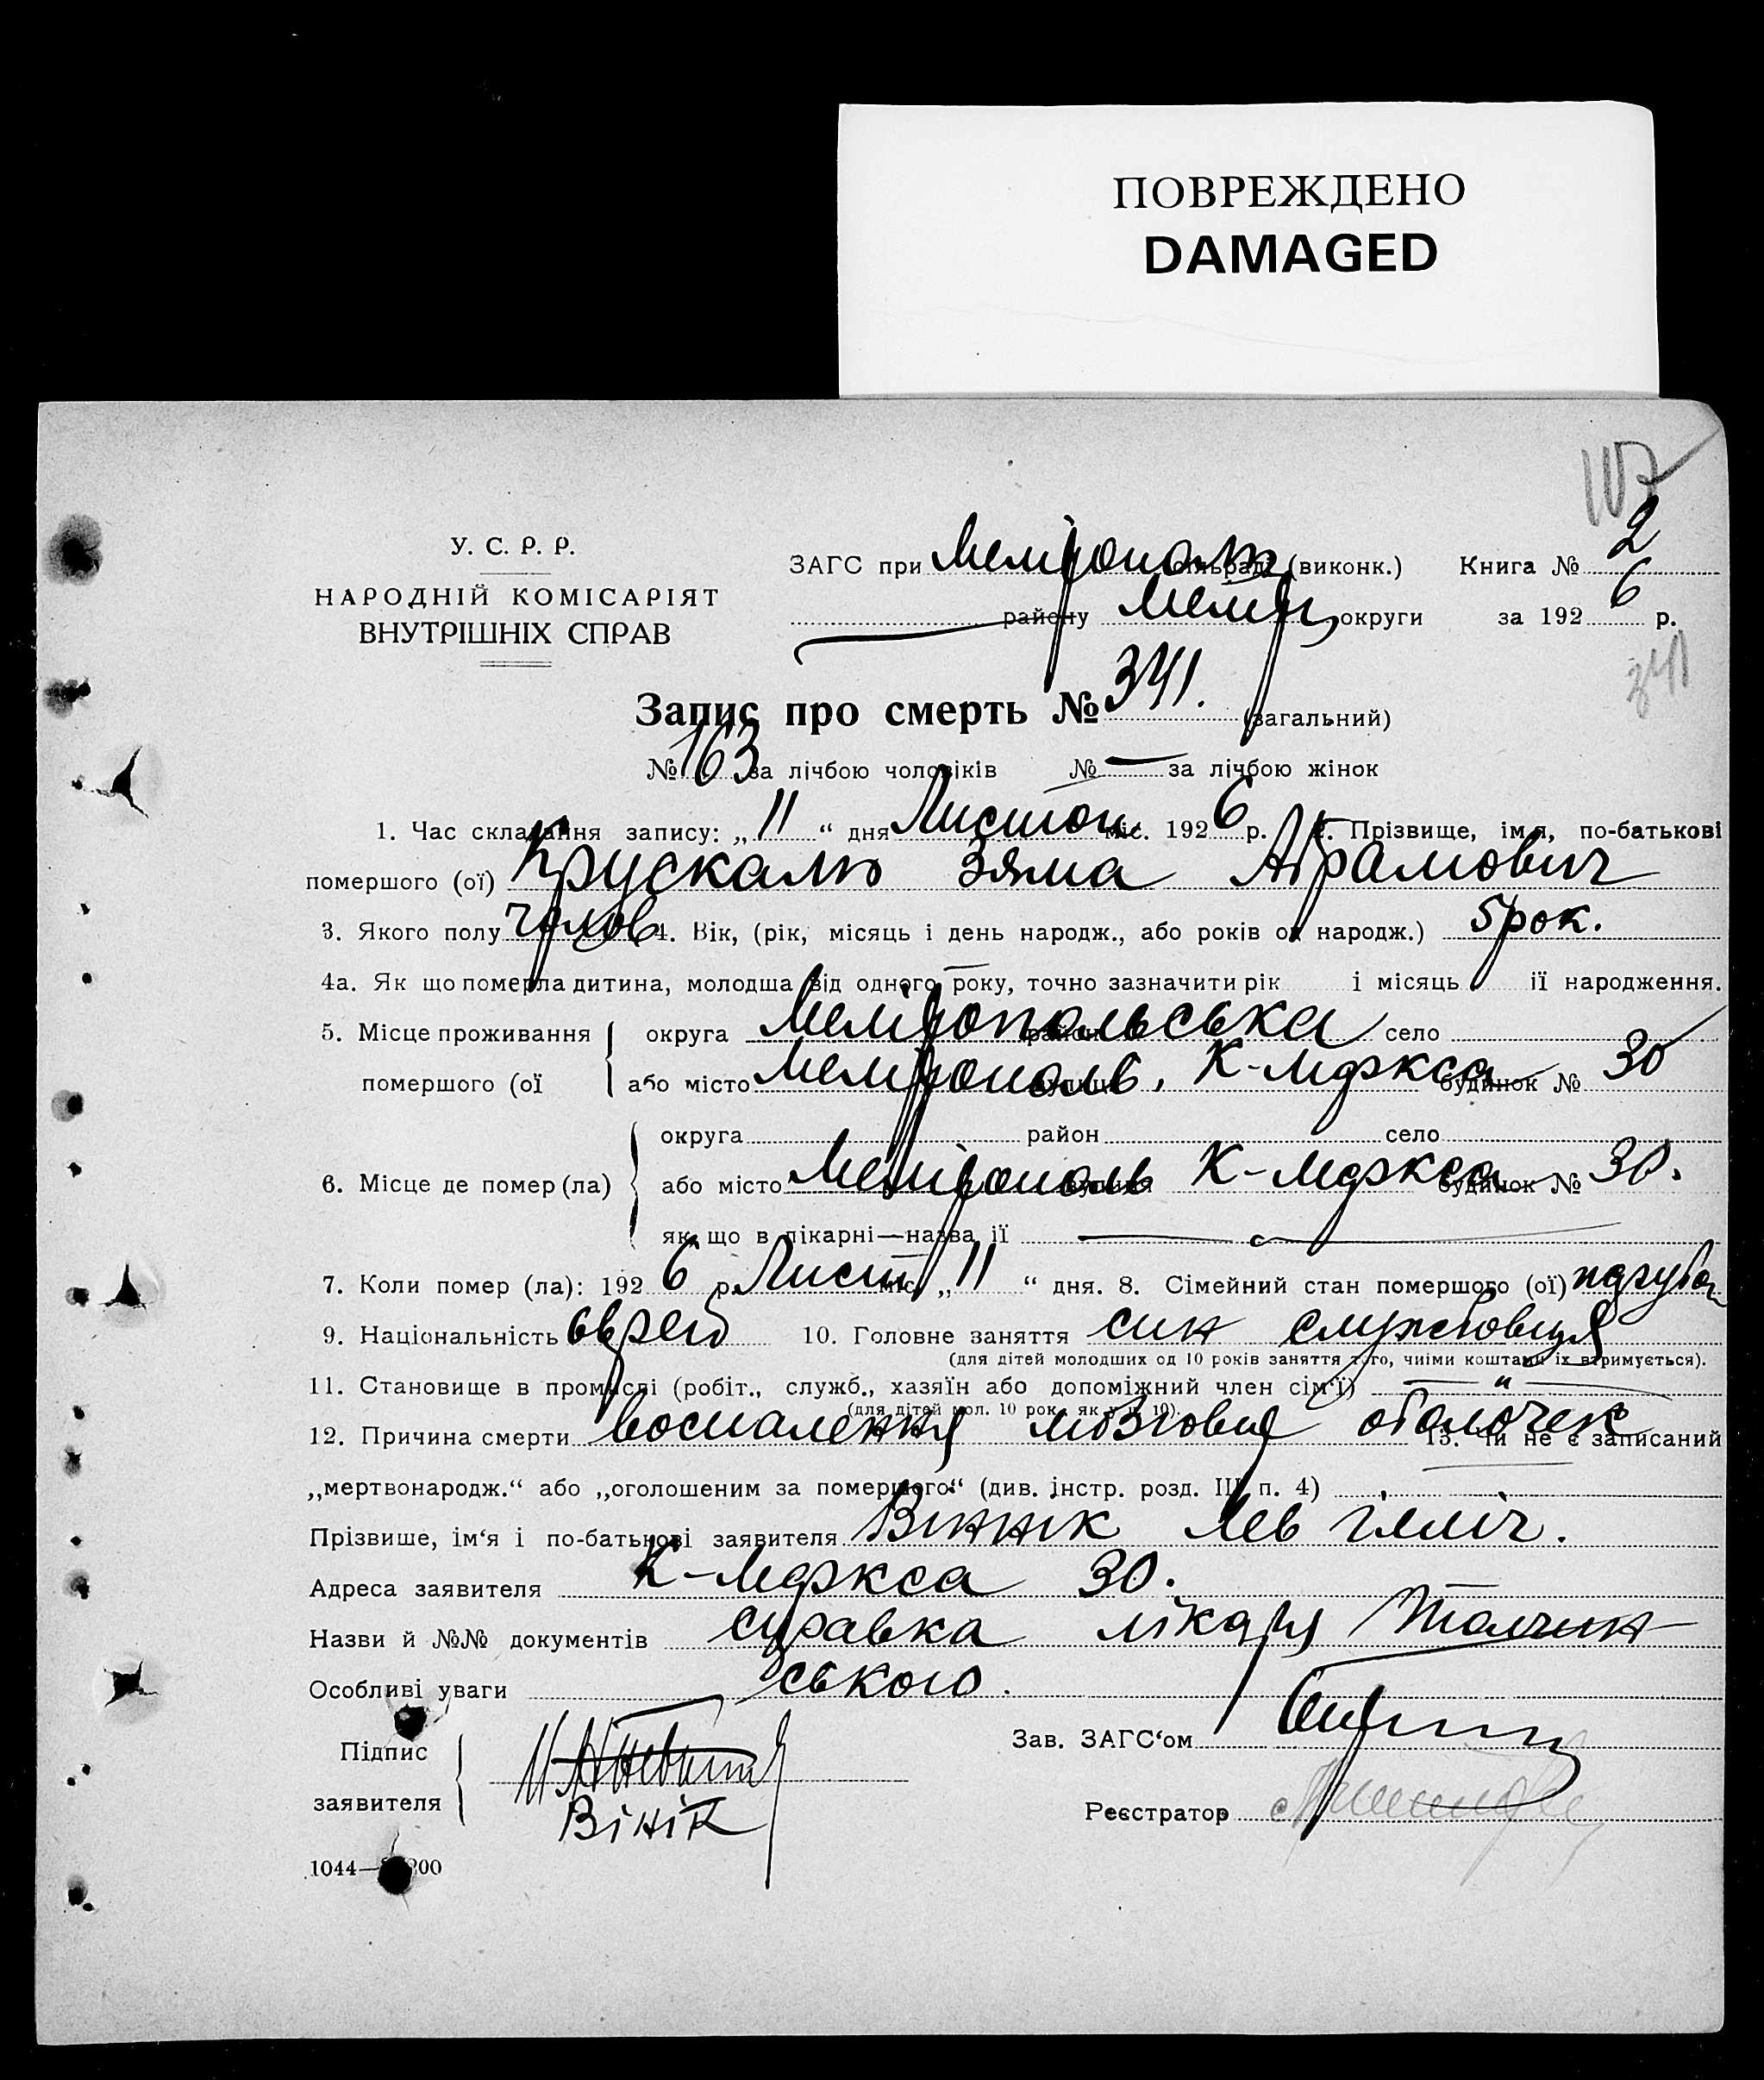 ПОВРЕЖДЕНО
DAMAGED
107
У. С. Р. Р.
НАРОДНІЙ КОМІСАРІЯТ
ВНУТРІШНІХ СПРАВ
ЗАГС при сільраді (виконк.) Книга № 2
району Меліт округи за 1926 р.
341
Запис про смерть № 341. (загальний)
№ 163 за лічбою чоловіків № — за лічбою жінок
1. Час складання запису: „ 11 “ дня Листоп міс. 1926 р. 2. Прізвище, ім'я, по-батькові
помершого (ої) Крускаль Зяма Абрамович
3. Якого полу чолов 4. Вік, (рік, місяць і день народж., або років од народж.) 5 рок.
4а. Як що померла дитина, молодша від одного року, точно зазначити рік і місяць її народження.
5. Місце проживання округа Мелітопольська район село
помершого (ої або місто Мелітополь, вулиця К-Маркса будинок № 30
округа район село
6. Місце де помер (ла) або місто Мелітополь вулиця К-Маркса будинок № 30.
як що в лікарні—назва її —
7. Коли помер (ла): 1926 р. Лист міс. „ 11 “ дня. 8. Сімейний стан помершого (ої)
9. Національність еврей 10. Головне заняття син службовця
(для дітей молодших од 10 років заняття того, чиїми коштами їх втримується).
11. Становище в промислі (робіт., служб., хазяїн або допоміжний член сім'ї) — " —
(для дітей мол. 10 рок. як у п. 10).
12. Причина смерти воспалення мозговых оболочек 13. Чи не є записаний
„мертвонародж.“ або „оголошеним за помершого“ (див. інстр. розд. III п. 4)
Прізвище, ім'я і по-батькові заявителя Віннік Лев Ілліч.
Адреса заявителя К-Маркса 30.
Назви й №№ документів справка лікаря Талчин
Особливі уваги ського.
Підпис
заявителя Вінік
Зав. ЗАГС'ом
Реєстратор